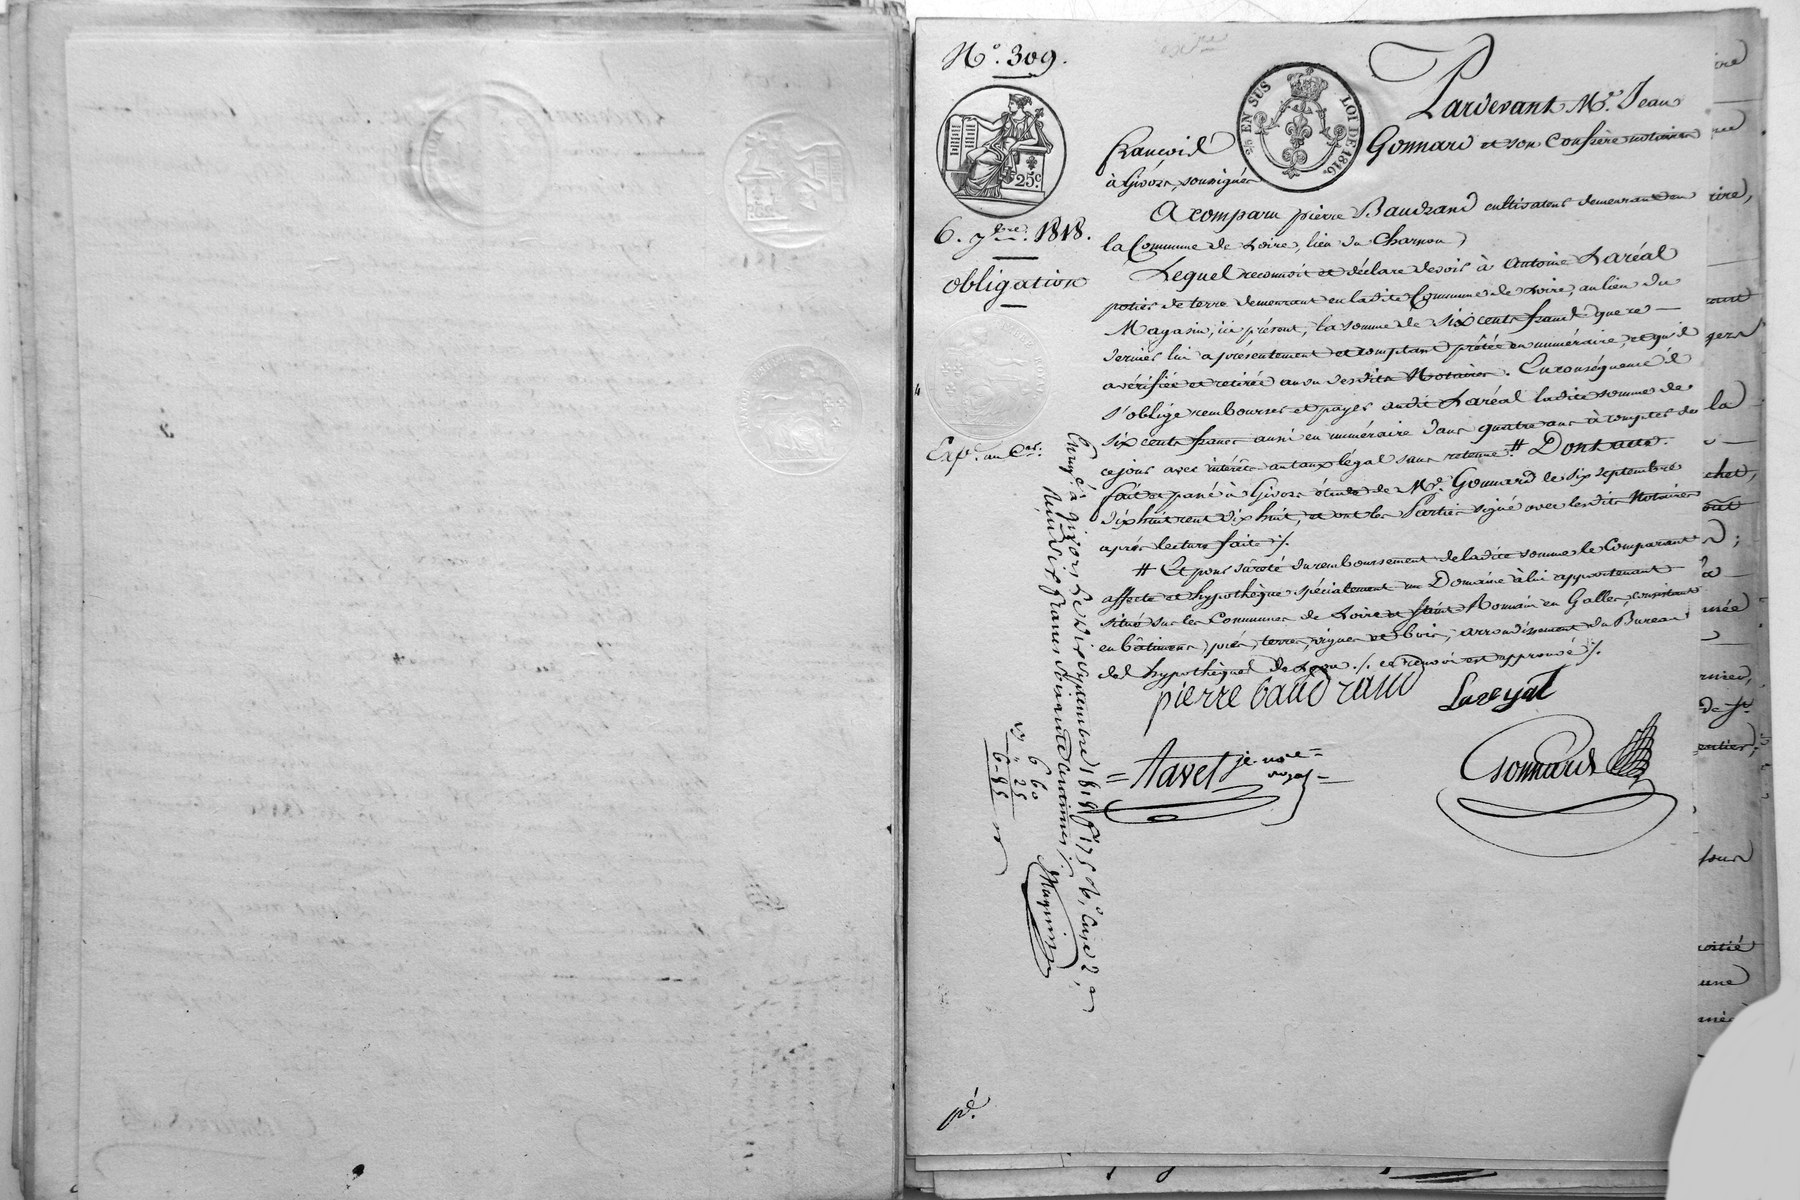 N.º 309.
25 c.
6. 7bre. 1818.
obligation
Exp. au Cer.
25c EN SUS
LOI DE 1816.
Pardevant Me. Jean
François Gonnard et son Confrère notaires
à Givors, soussignés
A comparu pierre Baudrand cultivateur demeurant en
la Commune de Loire, lieu du Charnou
Lequel reconnoit et déclare devoir à Antoine Laréal
potier de terre demeurant en ladite Commune de Loire, au lieu du
Magasin, ici présent, la somme de six cents francs que ce
dernier lui a présentement et comptant prêtée en numéraire, et qu'il
a vérifiée et retirée au vu desdits Notaires. En conséquence il
s'oblige rembourser et payer audit Laréal ladite somme de
six cents francs aussi en numéraire dans quatre ans à compter de
ce jour avec intérêts au taux légal sans retenue # Dont acte.
fait et passé à Givors étude de Me. Gonnard le six septembre
dix huit cent dix huit, et ont les Parties signé avec lesdits Notaires
après lecture faite ./.
# Et pour sûreté du remboursement de ladite somme le Comparant
affecte et hypothèque spécialement un Domaine à lui appartenant
situé sur les Communes de Loire et saint Romain en Galles, consistant
en bâtimens, prés, terres, vignes et bois, arrondissement du Bureau
des hypothèques de Lyon ./. ce renvoi est approuvé ./.
pierre baudrand
Lareyal
Tavel je. no.re
Gonnard
Enregé. à givors le dix septembre 1818 fº 175 Vº, Case 2,
Reçu six francs soixante centimes ./. Maguin
6 60
" 25
6-85
la
chet,